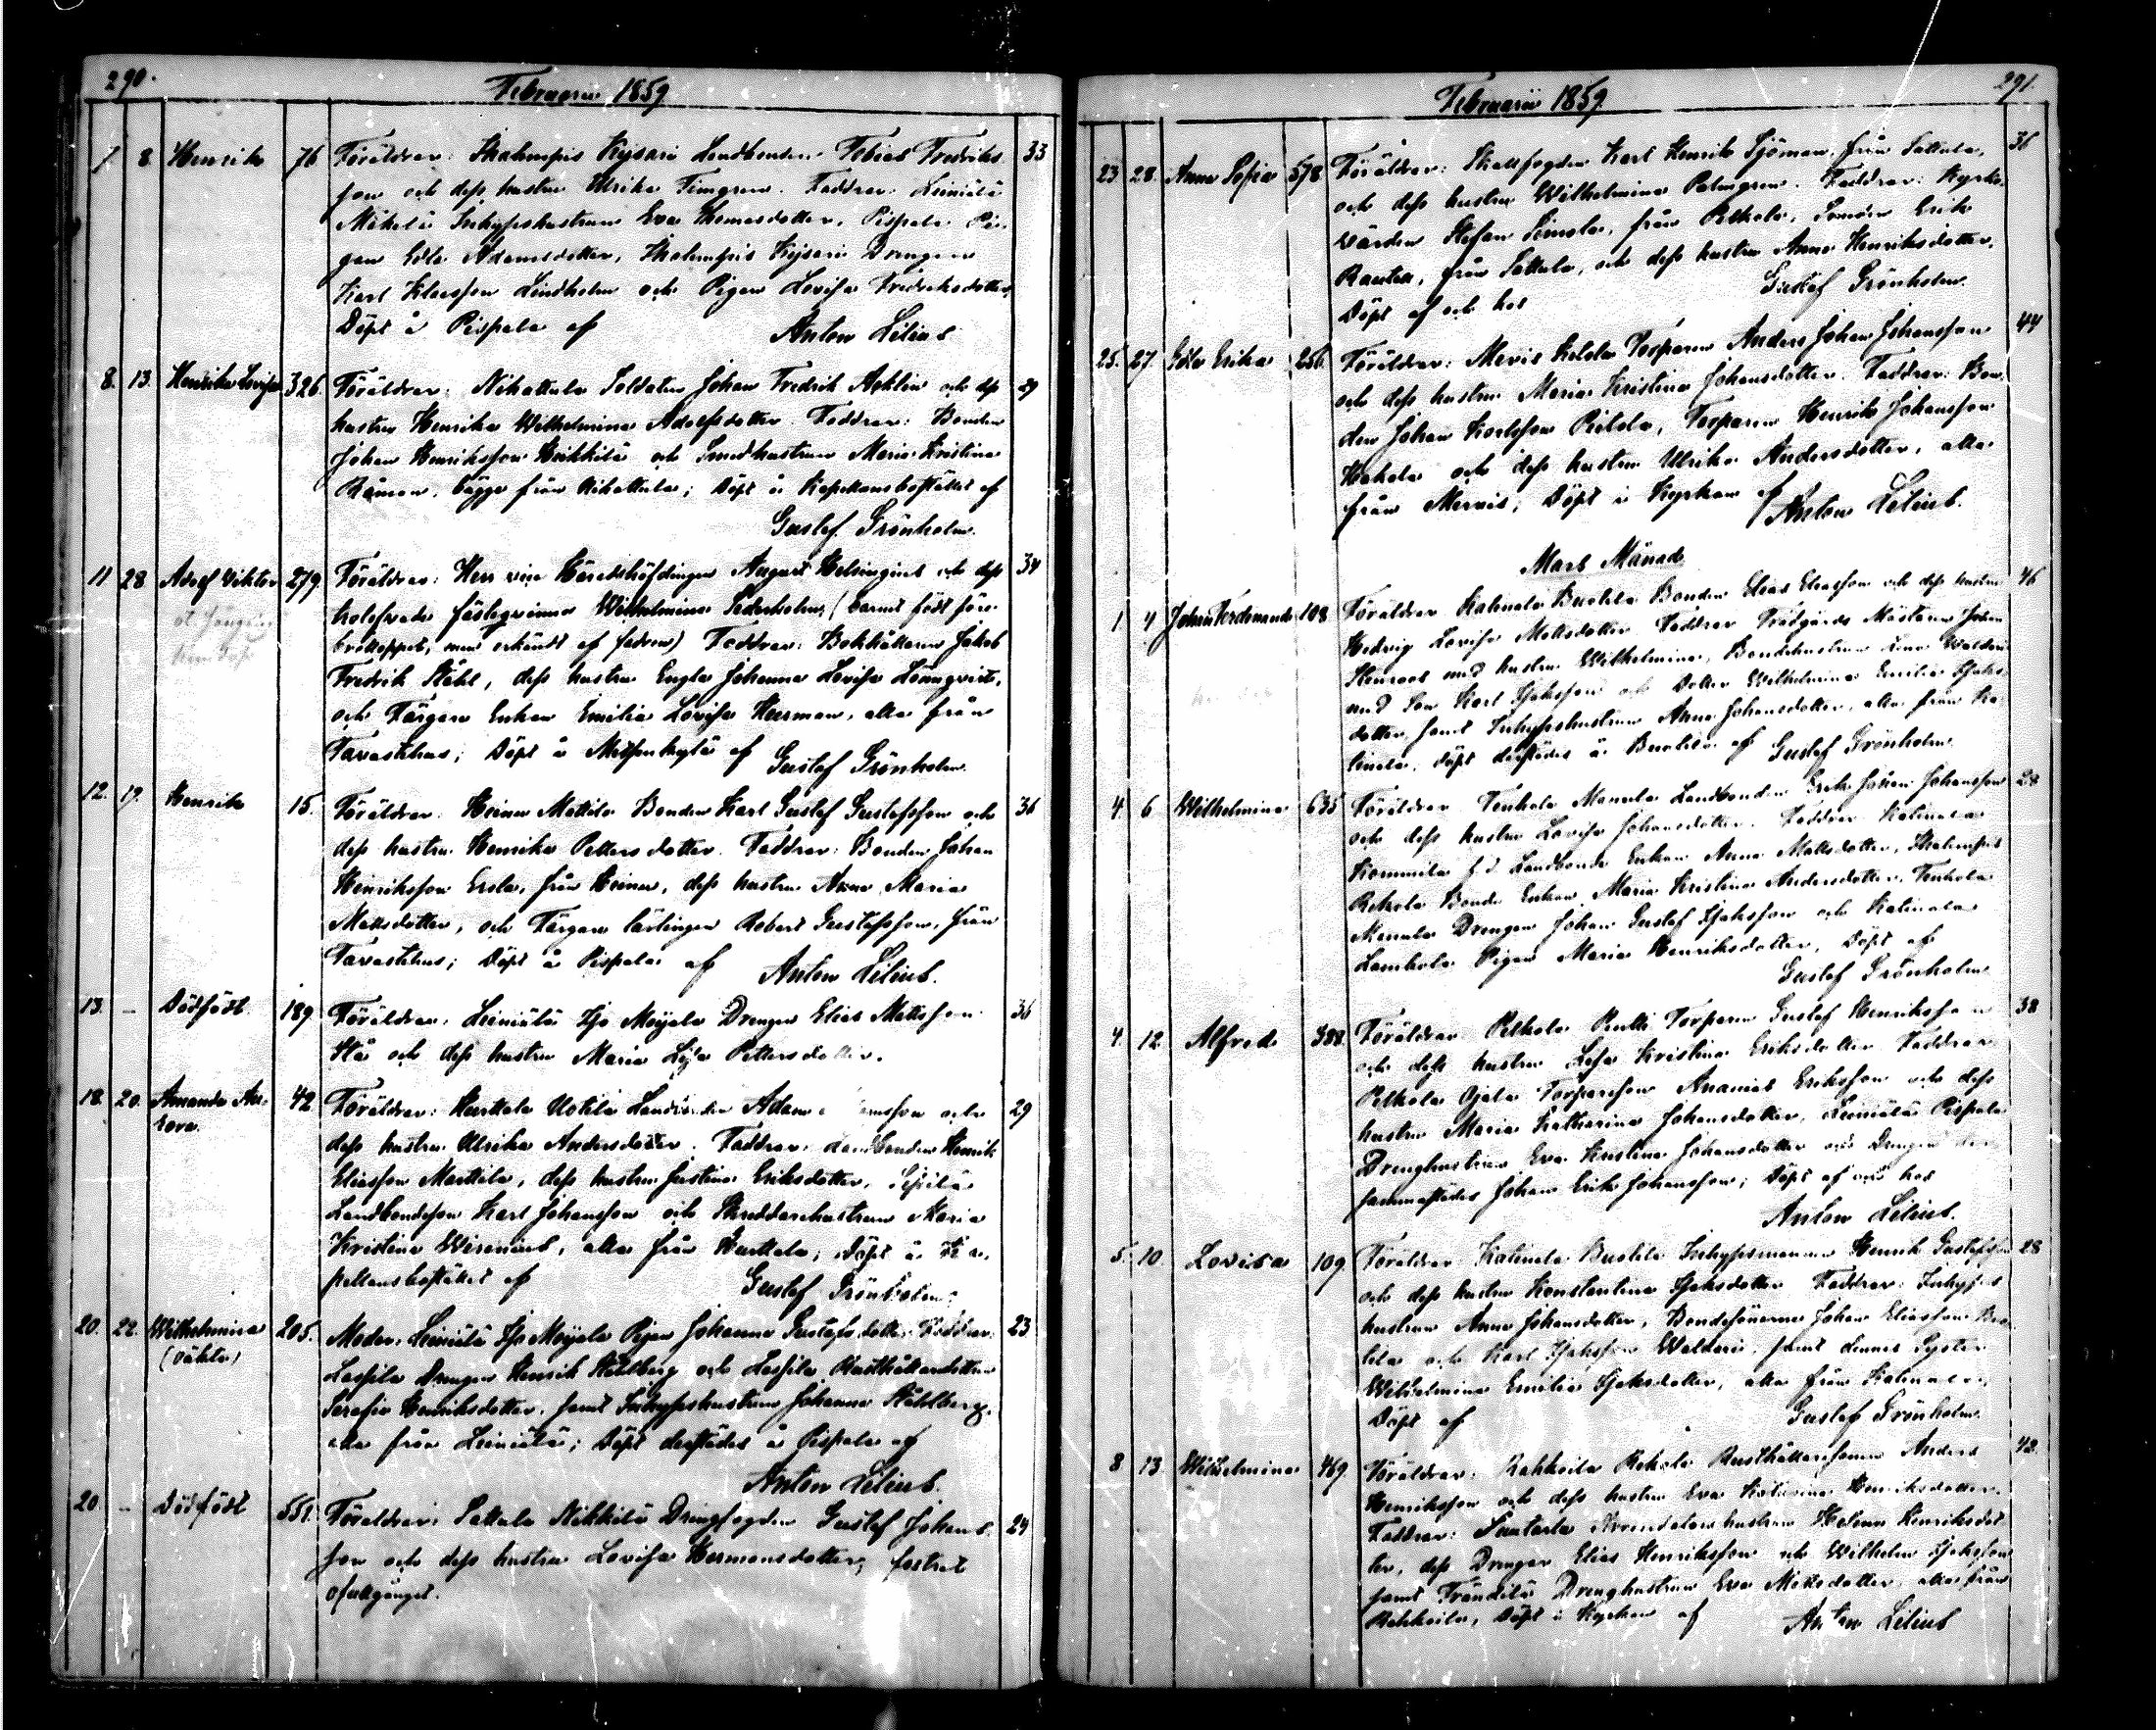 290.
Februarii 1859
7 8 Henrik 76 Föräldrar: Thalempis Kejsari Landbonden Tobias Fredriks- 33
son och dess hustru Ulrika Timgren. Faddrar: Leiniälä
Mikola Inhyseshustrun Eva Thomasdotter, Pispala Pi-
gan Edla Adamsdotter, Thalempis Kejsari Drengen
Karl Klaesson Lindholm och Pigan Lovisa Fredriksdotter,
Döpt å Pispala af Anton Lilius.
8. 13. Henrika Lovisa 326. Föräldrar: Nihattula Soldaten Johan Fredrik Asklin och dess 29
hustru Henrika Wilhelmina Adolfsdotter. Faddrar: Bonden
Johan Henriksson Heikkilä och Smedhustrun Maria Kristina
Råman, bägge från Nihattula; Döpt å Kapellansbostället af
Gustaf Grönholm.
11 28 Adolf Viktor 279. Föräldrar: Herr vice Häradshöfdingen August Helsingius och dess 34
trolofvade fästeqvinna Wilhelmina Sederholm, (barnet födt före
bröllopet, men erkändt af fadren) Faddrar: Bokhållaren Jakob
Fredrik Ståhl, dess hustru Engla Johanna Lovisa Lönnqvist,
och Färgare Enkan Emilia Lovisa Heerman, alla från
Tavastehus; Döpt å Miemenkylä af Gustaf Grönholm.
12. 19. Henrik 15. Föräldrar: Heinu Mattila Bonden Karl Gustaf Gustafsson och 36
dess hustru Henrika Pettersdotter. Faddrar: Bonden Johan
Henriksson Erola, från Heinu, dess hustru Anna Maria
Mattsdotter, och Färgare lärlingen Robert Gustafsson, från
Tavastehus; Döpt å Pispala af Anton Lilius.
13. – Dödfödt. 189. Föräldrar: Leiniälä Iso Moijala Drengen Elias Mattsson 36
Stå och dess hustru Maria Lisa Pettersdotter.
18. 20. Amanda Au- 42 Föräldrar: Hurttala Uotila Landbonden Adam Adamsson och 29
rora. dess hustru Ulrika Andersdotter. Faddrar: Landbonden Henrik
Eliasson Marttila, dess hustru Justina Eriksdotter, Seppälä
Landbondeson Karl Johansson och Skreddarehustrun Maria
Kristina Wirenius, alla från Hurttala; Döpt å Ka-
pellansbostället af Gustaf Grönholm.
20. 22. Wilhelmina 205. Moder: Leiniälä Iso Moijala Pigan Johanna Gustafsdotter. Faddrar: 23
(oäkta) Lassila Drengen Henrik Ståhlberg och Lassila Rusthållaredottren
Serafia Henriksdotter, samt Inhyseshustrun Johanna Ståhlberg,
alla från Leiniälä; Döpt derstädes å Pispala af
Anton Lilius.
20. – Dödfödt 551. Föräldrar: Sattula Nikkilä Drengfogden Gustaf Johans- 24
son och dess hustru Lovisa Hermansdotter; fostret
ofullgånget.
291.
Februarii 1859.
23 28. Anna Sofia 578 Föräldrar: Skallfogden Karl Henrik Sjöman, från Sattula, 36
och dess hustru Wilhelmina Palmgren. Faddrar: Kyrko-
värden Stefan Simola, från Pelkola, Sonen Erik
Rantea, från Sattula, och dess hustru Anna Henriksdotter,
Döpt af och hos Gustaf Grönholm.
25. 27. Edla Erika 256. Föräldrar: Mervis Kolola Torparen Anders Johan Johansson 44
och dess hustru Maria Kristina Johansdotter. Faddrar: Bon-
den Johan Karlsson Pietola, Torparen Henrik Johansson
Hakala och dess hustru Ulrika Andersdotter, alla
från Mervis; Döpt i Kyrkan af Anton Lilius.
Mars Månad
1 4 Johan Ferdinand 108 Föräldrar Katinala Buotila Bonden Elias Eliasson och dess hustru 46
Hedvig Lovisa Mattsdotter. Faddrar Trädgårds Mästaren Johan
Stenroos med hustru Wilhelmina, Bondehustrun Lena Waldari
med Son Karl Isaksson och Dotter Wilhelmina Emilia Isaks-
dotter, samt Inhyseshustrun Anna Johansdotter, alla från Ka-
tinala. Döpt derstädes å Buotila af Gustaf Grönholm.
4. 6 Wilhelmina 635 Föräldrar Tenhola Mannila Landbonden Erik Johan Johansson 28
och dess hustru Lovisa Johansdotter. Faddrar Katinala
Kommila f.d. Landbonde Enkan Anna Mattsdotter, Thalempis
Rekola Bonde Enkan Maria Kristina Andersdotter, Tenhola
Mannila Drengen Johan Gustaf Isaksson och Katinala
Lamhola Pigan Maria Henriksdotter, Döpt af
Gustaf Grönholm.
4. 12 Alfred 388. Föräldrar Pelkola Rulli Torparen Gustaf Henriksson 38
och dess hustru Lisa Kristina Eriksdotter Faddrar
Pelkola Ojala Torparson Ananias Eriksson och dess
hustru Maria Katharina Johansdotter, Leiniälä Pispala
Drenghustrun Eva Kristina Johansdotter och Drengen der
sammastädes Johan Erik Johansson; Döpt af och hos
Anton Lilius.
5. 10. Lovisa 109 Föräldrar Katinala Buotila Inhysesmannen Henrik Gustafsson 28
och dess hustru Konstantina Isaksdotter Faddrar: Inhyses
hustrun Anna Johansdotter, Bondesönerna Johan Eliasson Buo-
tila och Karl Isaksson Waldari, samt dennes Syster
Wilhelmina Emilia Isaksdotter, alla från Katinala,
Döpt af Gustaf Grönholm.
8 13. Wilhelmina 469. Föräldrar: Rahkoila Rekola Rusthållaresonen Anders 42
Henriksson och dess hustru Eva Katarina Henriksdotter.
Faddrar: Suutarla Arrendatorshustrun Helena Henriksdot-
ter, dess Drengar Elias Henriksson och Wilhelm Isaksson
samt Fränditä Drenghustrun Eva Mattsdotter, alla från
Rahkoila, Döpt i Kyrkan af Anton Lilius